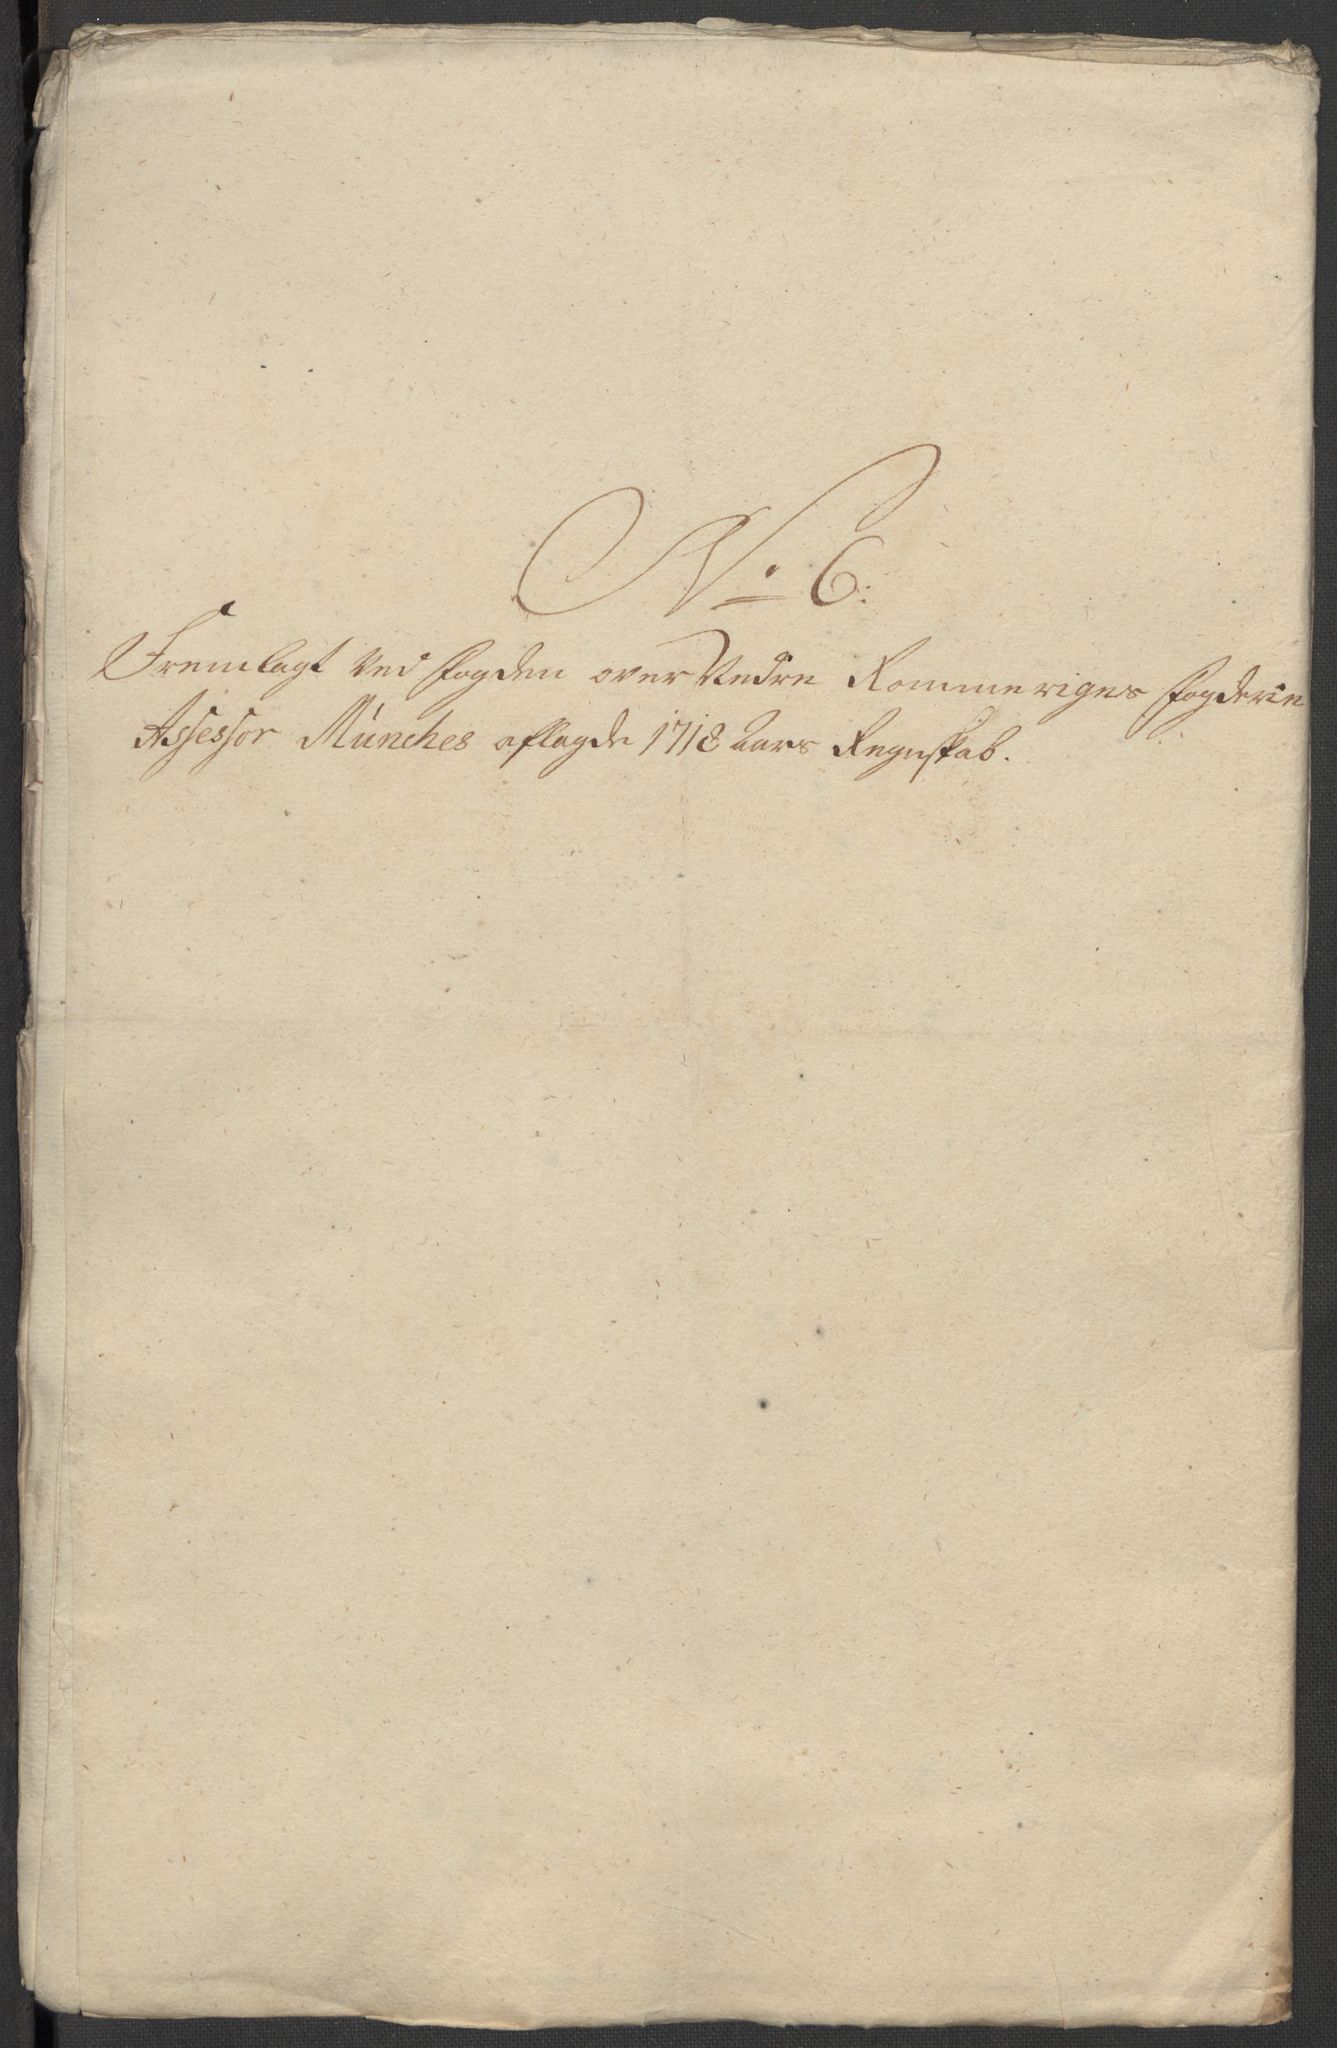 No 6:
Fremlagt ved fogden over Nedre Rommeriges fogderie
Assessor Münches aflagde 1718 Aars Regnskab.